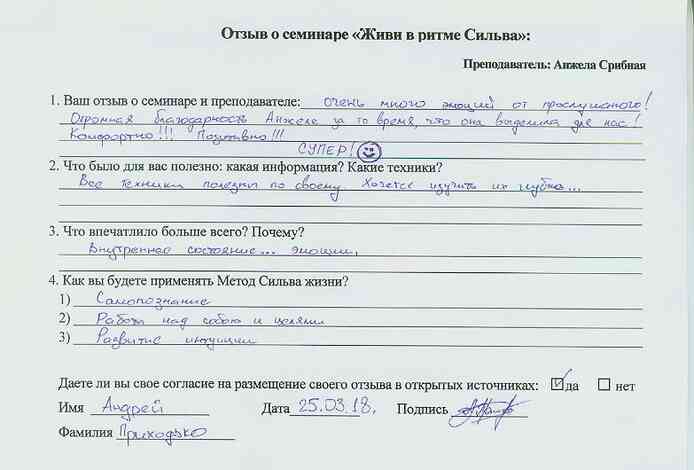 Отзыв о семинаре «Живи в ритме Сильва»:
Преподаватель: Анжела Срибная
1. Ваш отзыв о семинаре и преподавателе: Очень много эмоций от прослушаного!
Огромная благодарность Анжеле за то время, что она выделила для нас!
Комфортно!!! Позитивно!!!
СУПЕР!
2. Что было для вас полезно: какая информация? Какие техники?
Все техники полезны по своему. Хочется изучить их глубже...
3. Что впечатлило больше всего? Почему?
Внутреннее состояние... эмоции,
4. Как вы будете применять Метод Сильва жизни?
1) Самопознание
2) Работа над собою и целями
3) Развитие интуиции
Даете ли вы свое согласие на размещение своего отзыва в открытых источниках: да нет
Имя Андрей Дата 25.03.18. Подпись
Фамилия Приходько